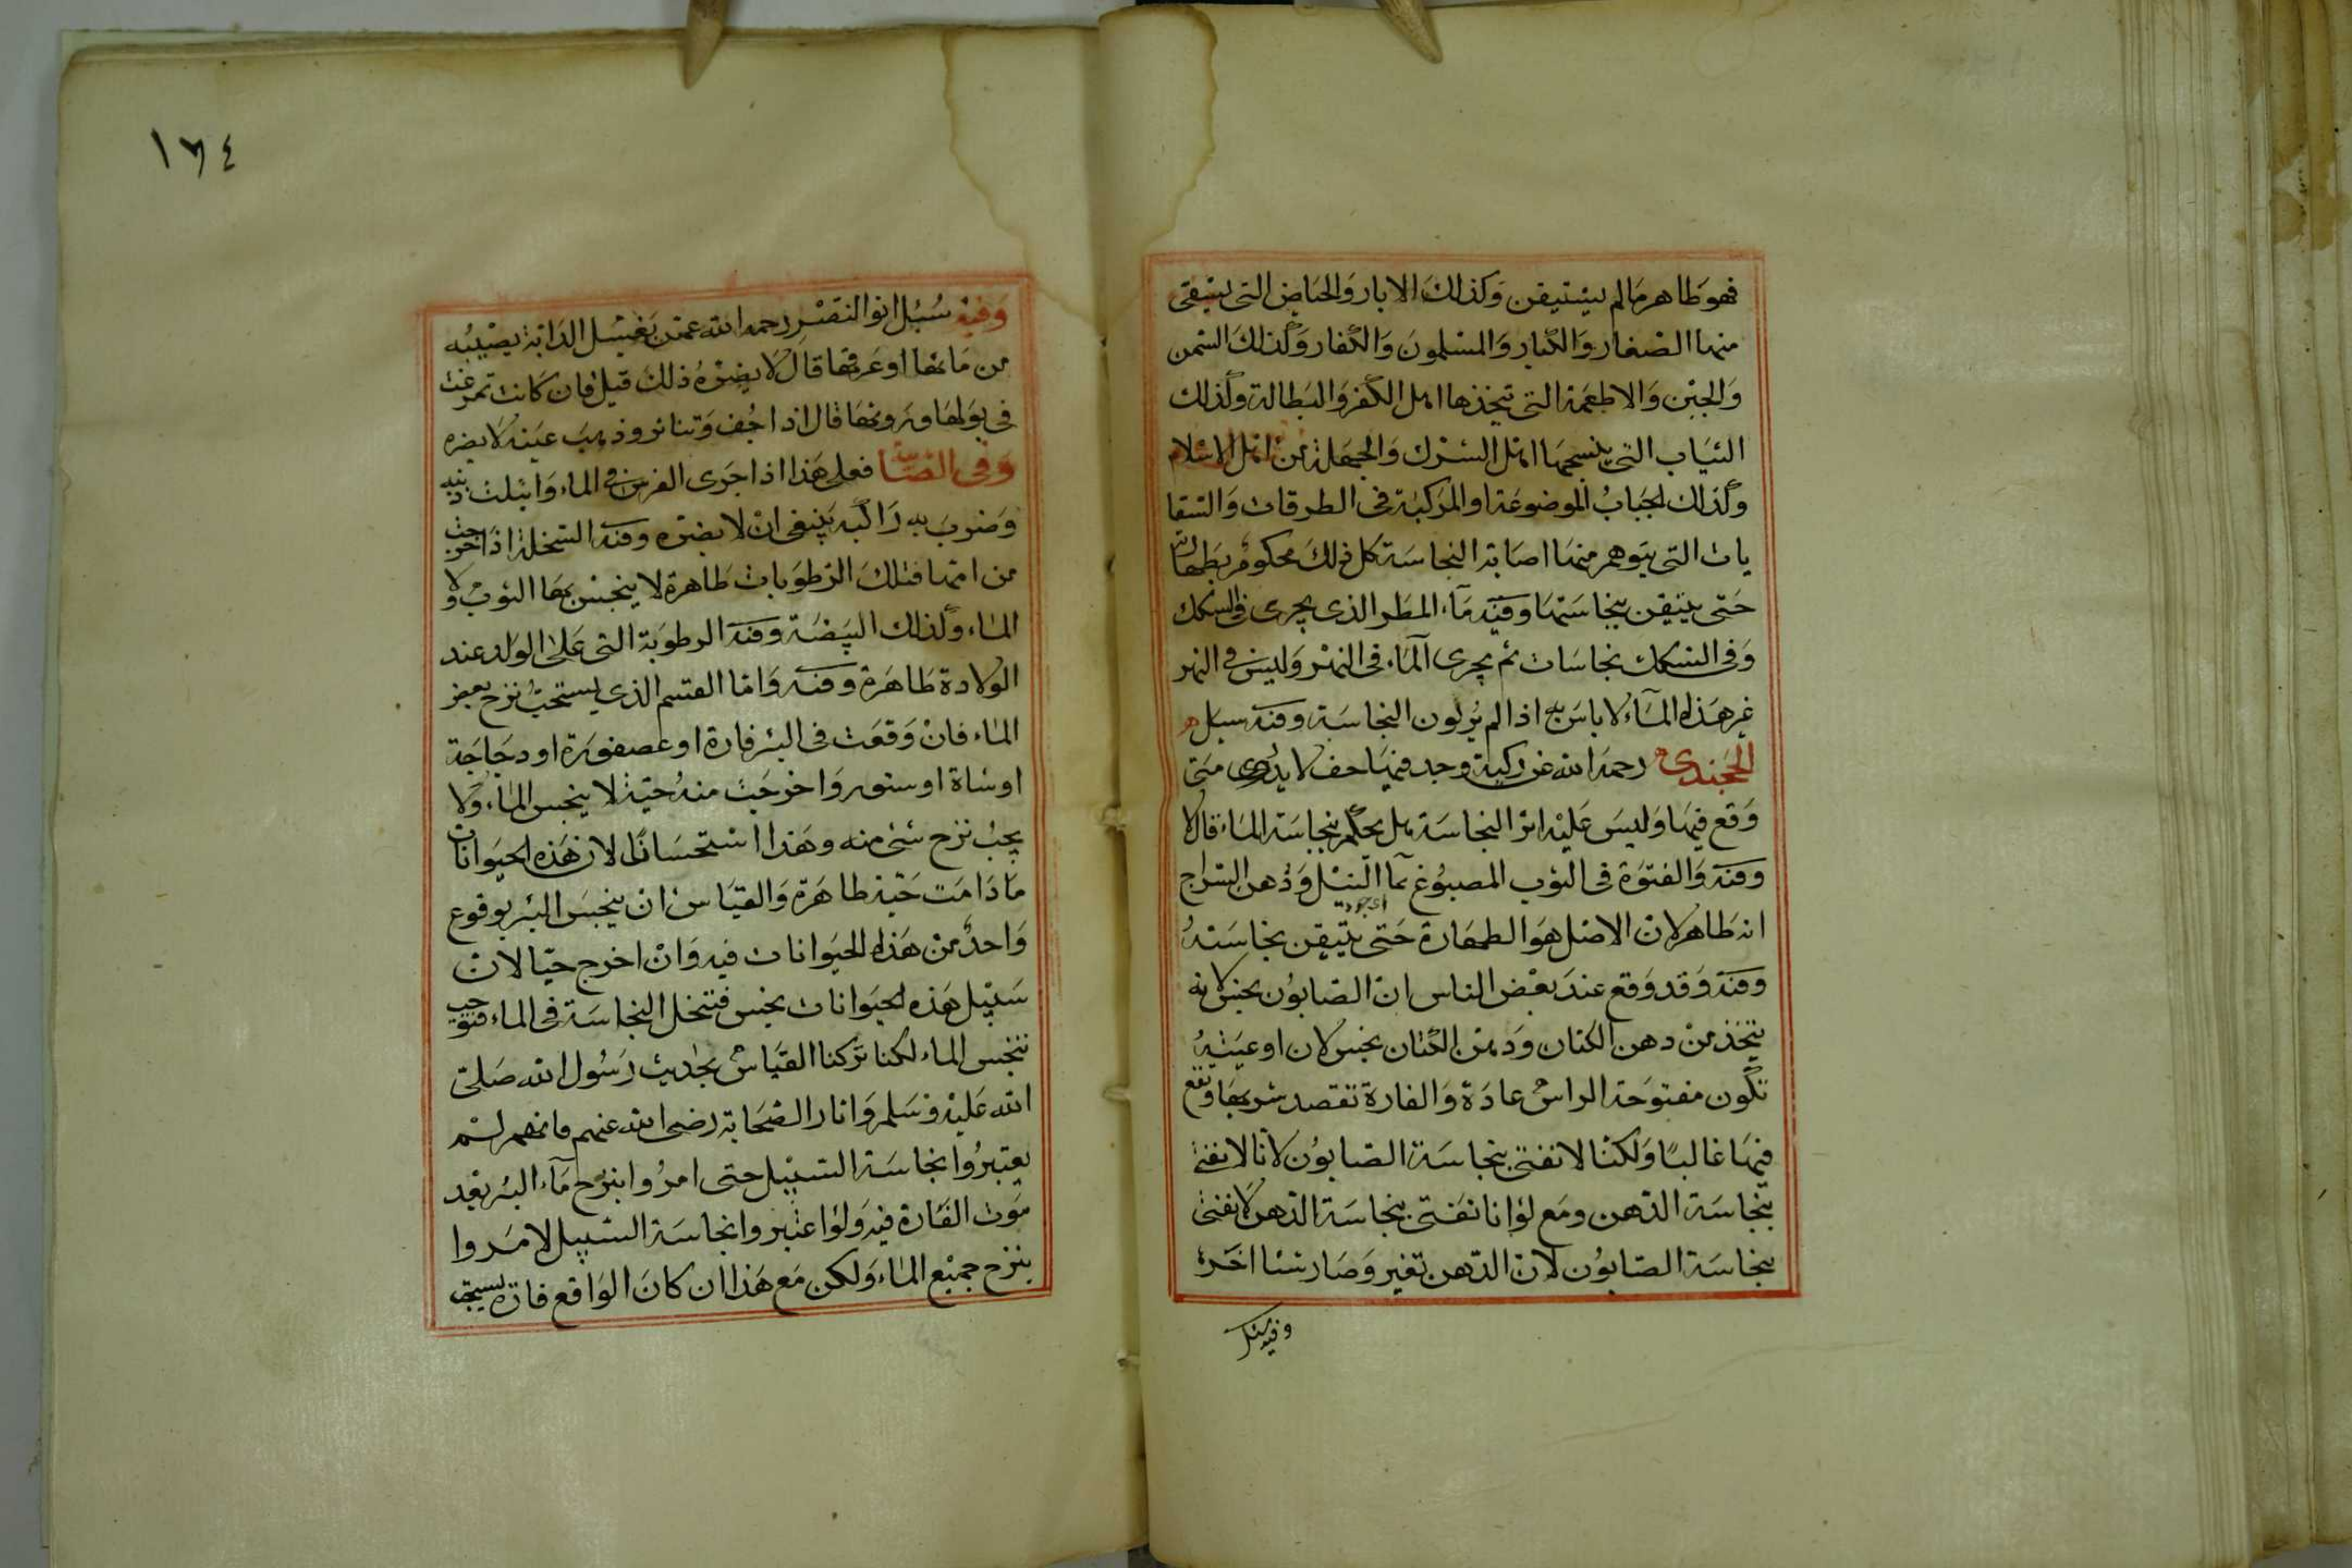 فهو طاهر ما لم يستيقن وكذلك الابار والحياض التى يستقى
منها الصغار والكبار والمسلمون والكفار وكذلك السمن
والجبن والاطعمة التى يتخذها اهل الكفر والبطالة وكذلك
الثياب التى ينسجها اهل الشرك والجهلة من اهل الاسلام
وكذلك الجباب الموضوعة او المركبة فى الطرقات والسقا
يات التى يتوهم منها اصابة النجاسة كل ذلك محكوم بطهارته
حتى يتيقن بنجاستها وفيه ماء المطر الذى يجرى فى السكك
وفى السكك نجاسات ثم يجرى الماء فى النهر وليس فى النهر
غير هذا الماء لا باس به اذا لم ير لون النجاسة وفيه سيل
الخجندى رحمه الله عن ركية وجد فيها خف لا يدرى متى
وقع فيها وليس عليه اثر النجاسة هل يحكم بنجاسة الماء قال لا
وفيه والفتوة فى الثوب المصبوغ بماء النيل ودهن السراج
انه طاهر لان الاصل هو الطهارة حتى يتيقن بنجاسته
وفيه وقد وقع عند بعض الناس ان الصابون نجس لانه
يتخذ من دهن الكتان ودهن الكتان نجس لان اوعيته
تكون مفتوحة الراس عادة والفارة تقصد شربها وتقع
فيها غالبا ولكنا لا نفتى بنجاسة الصابون لانا لا نفتى
بنجاسة الدهن ومع لو انا نفتى بنجاسة الدهن لا نفتى
بنجاسة الصابون لان الدهن تغير وصار شئا اخر
وفيه سئل
١٦٤
وفيه سئل ابو النصر رحمه الله عمن يغسل الدابة يصيبه
من مائها او عرقها قال لا يضره ذلك قيل فان كانت تمرغت
فى بولها وروثها قال اذا جف وتناثر وذهب عينه لا يضره
وفى فعلى هذا اذا جرى الفرس فى الماء وابتلت ذنبه
وضرب به راكبه ينبغى ان لا يضره وفيه السخلة اذا خرجت
من امها فتلك الرطوبات طاهرة لا ينجس بها الثوب ولا
الماء وكذلك البيضة وفيه الرطوبة التى على الولد عند
الولادة طاهرة وفيه واما القسم الذى يستحب نزح بعض
الماء فان وقعت فى البئر فارة او عصفورة او دجاجة
او شاة او سنور واخرجت منه حية لا ينجس الماء ولا
يجب نزح شئ منه وهذا استحسانا لان هذه الحيوانات
ما دامت حية طاهرة والقياس ان ينجس البئر بوقوع
واحد من هذه الحيوانات فيه وان اخرج حيا لان
سبيل هذه الحيوانات نجس فتحل النجاسة فى الماء فتوجب
تنجس الماء لكنا تركنا القياس بحديث رسول الله صلى
الله عليه وسلم واثار الصحابة رضى الله عنهم فانهم لم
يعتبروا نجاسة السبيل حتى امروا بنزح ماء البئر بعد
موت الفارة فيه ولو اعتبروا نجاسة السبيل لامروا
بنزح جميع الماء ولكن مع هذا ان كان الواقع فارة يستحب